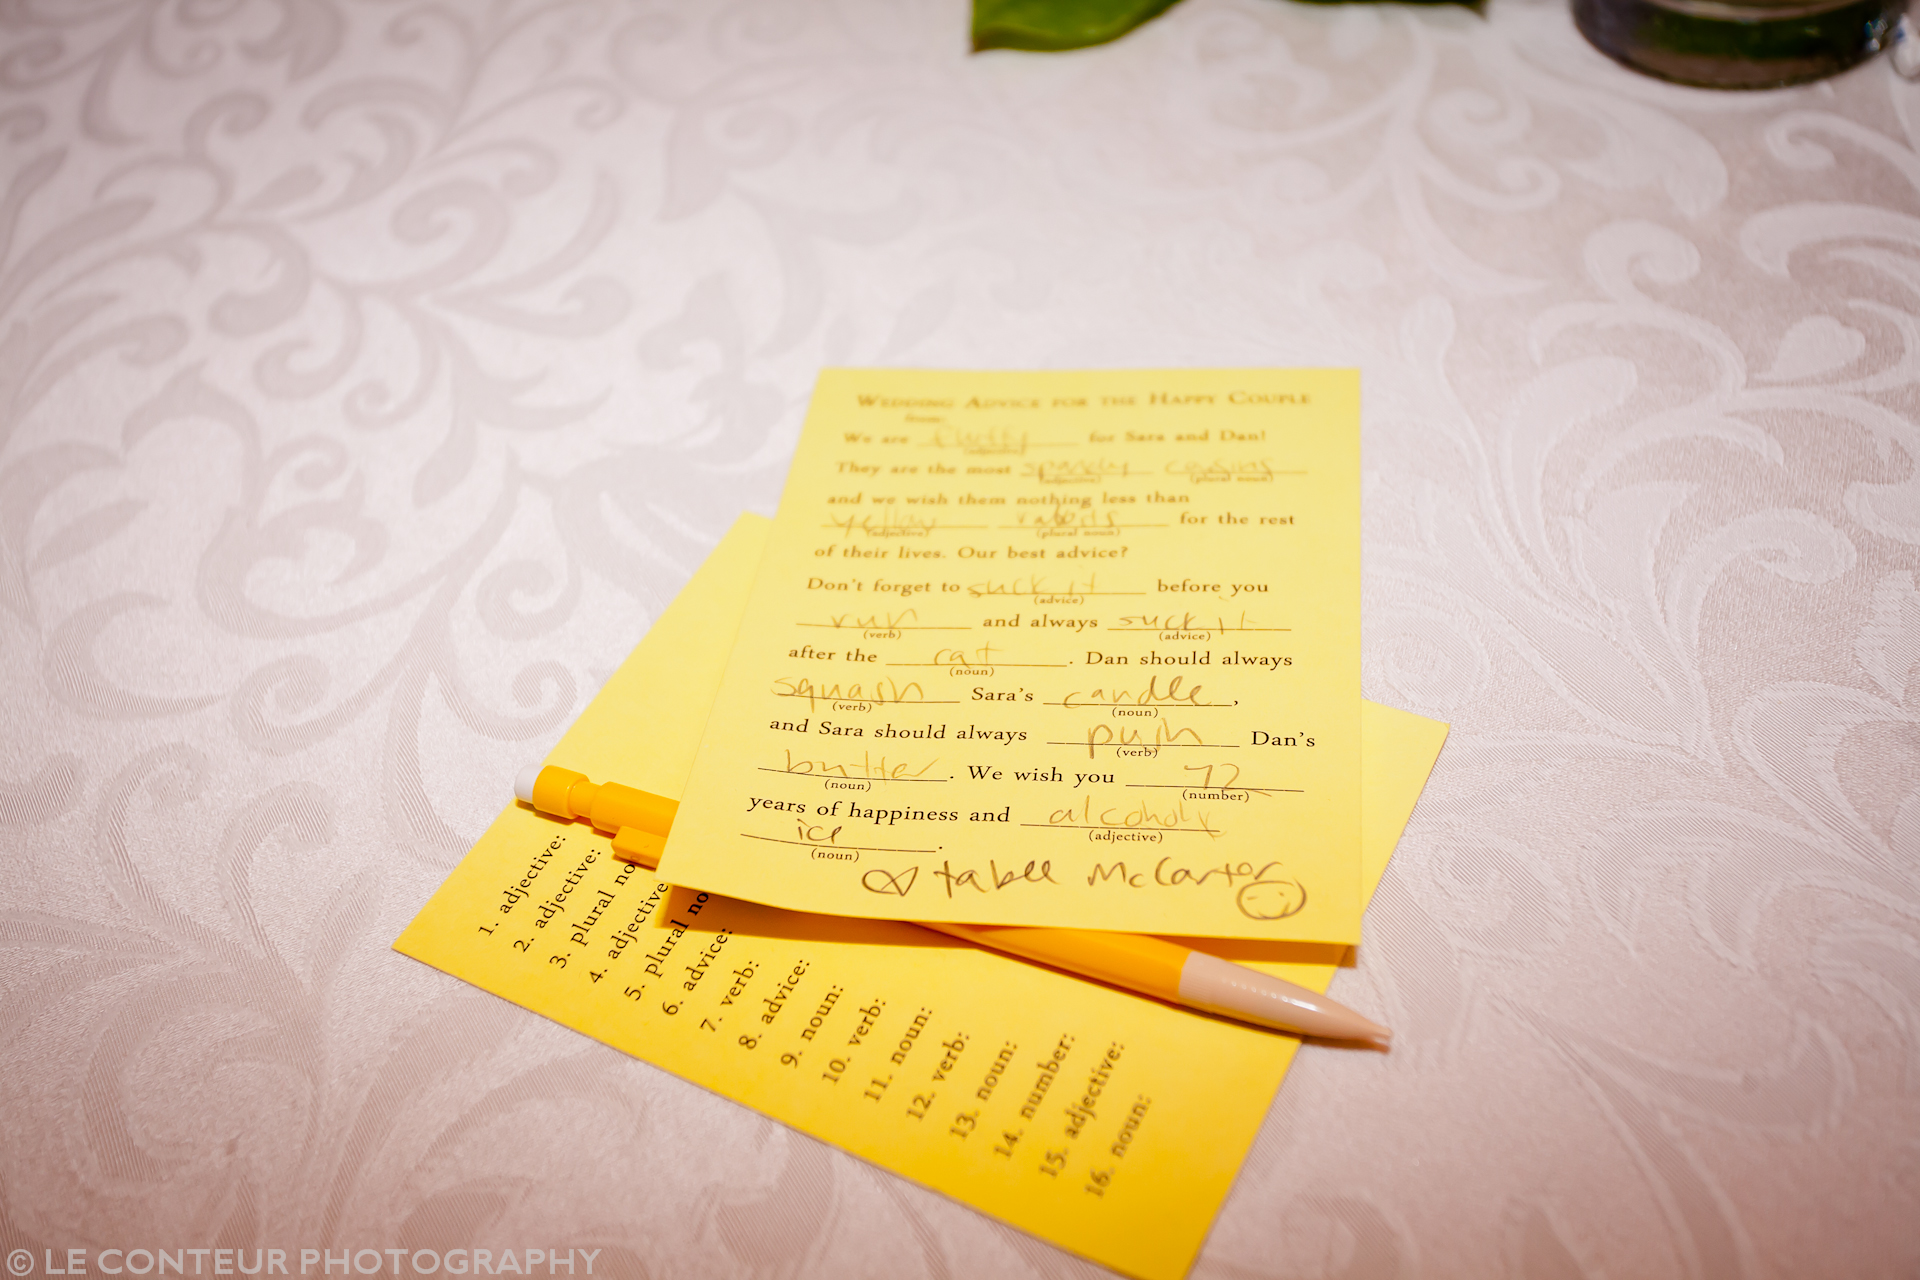 WEDDING ADVICE FOR THE HAPPY COUPLE
from
We are fluffy for Sara and Dan!
(adjective)
They are the most spandy cousins
(adjective) (plural noun)
and we wish them nothing less than
yellow rabbits for the rest
(adjective) (plural noun)
of their lives. Our best advice?
Don't forget to suck it before you
(advice)
run and always suck it
(verb) (advice)
after the cat. Dan should always
(noun)
squash Sara's candle,
(verb) (noun)
and Sara should always push Dan's
(verb)
butter. We wish you 72
(noun) (number)
years of happiness and alcoholy
(adjective)
ice.
(noun)
table McCarter
1. adjective:
2. adjective:
3. plural no
4. adjective
5. plural no
6. advice:
7. verb:
8. advice:
9. noun:
10. verb:
11. noun:
12. verb:
13. noun:
14. number:
15. adjective:
16. noun:
© LE CONTEUR PHOTOGRAPHY